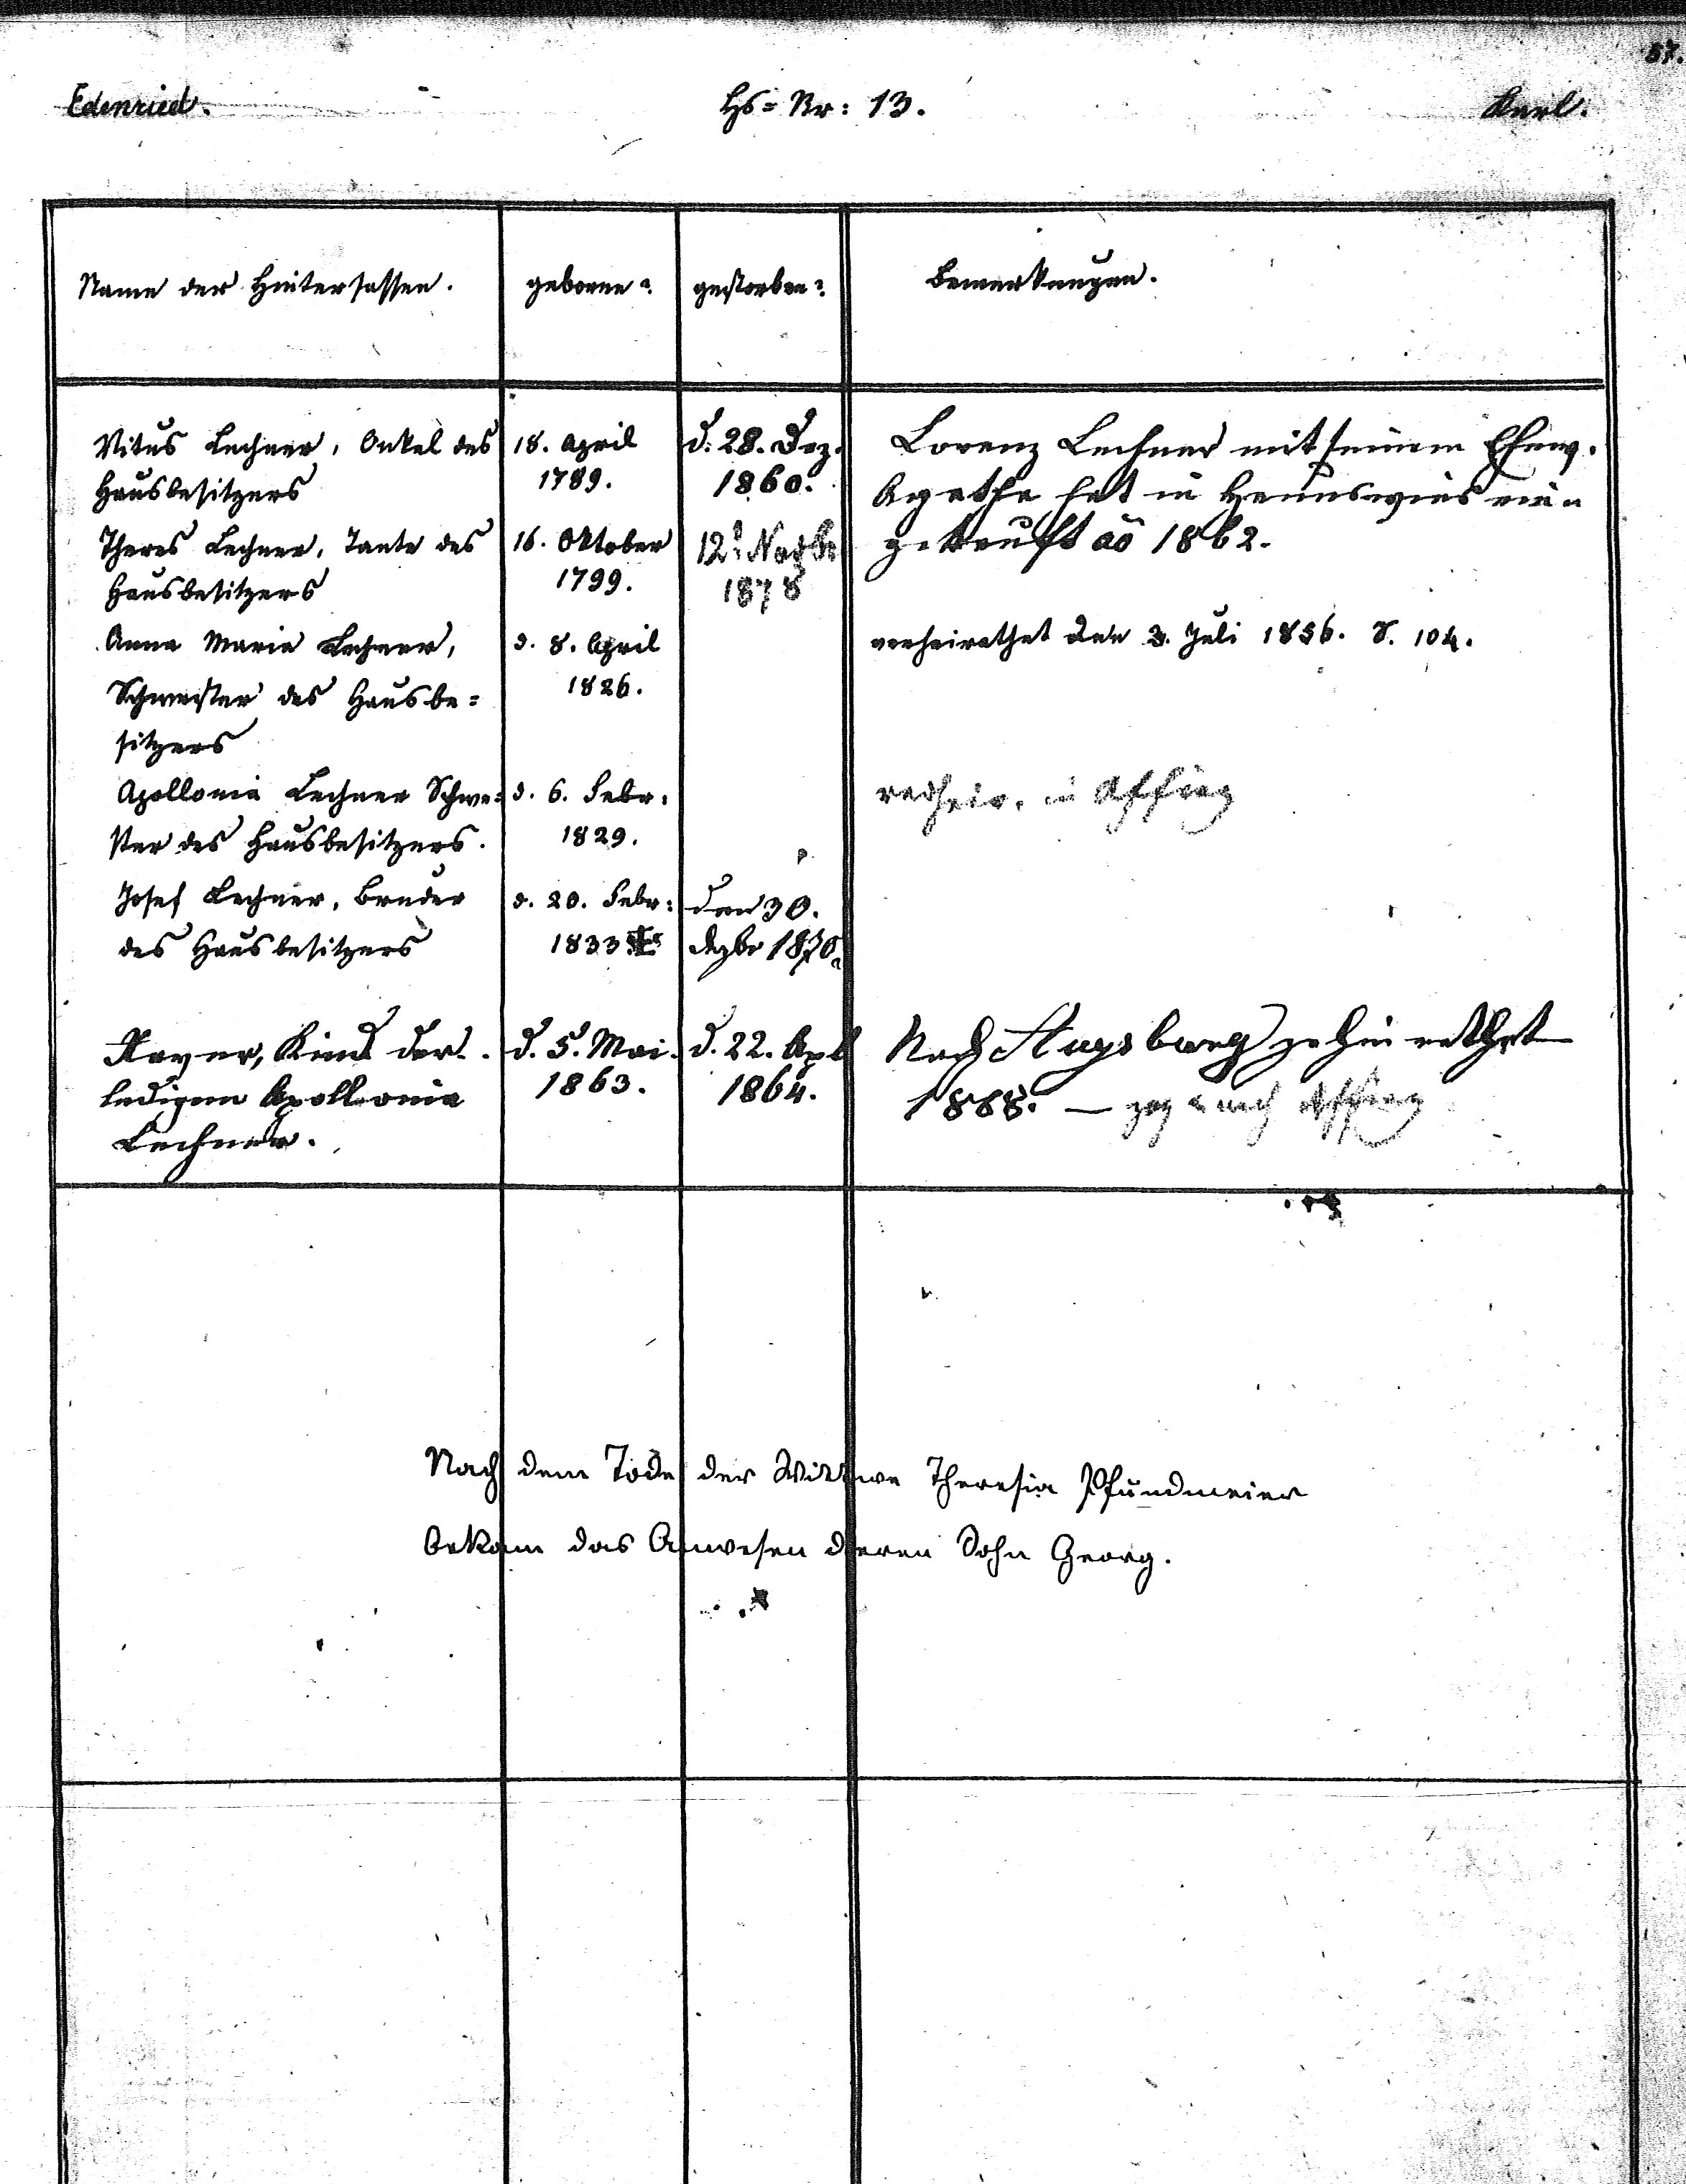 57.
Edenried. Hs=Nr: 13. Karl.
Name der Hintersassen. geboren? gestorben? Bemerkungen.
Vitus Lechner, Onkel des 18. April d. 28. Dez. Lorenz Lechner mit seinem Ehew.
Hausbesitzers 1789. 1860. Agatha hat in ein
Theres Lechner, Tante des 16. Oktober 12. Novbr gekauft ao 1862.
Hausbesitzers 1799. 1878
Anna Maria Lechner, d. 8. April verheirathet den 3. Juli 1856. S. 104.
Schwester des Hausbe= 1826.
sitzers
Apollonia Lechner Schwe= d. 6. Febr: verheir. in Affing
ster des Hausbesitzers. 1829.
Josef Lechner, Bruder d. 20. Febr: den 30.
des Hausbesitzers 1833. Dezbr 1870.
Xaver, Kind der d. 5. Mai d. 22. Apl Nach Augsburg geheirathet
ledigen Apollonia 1863. 1864. 1868. — zog nach Affing
Lechner.
Nach dem Tode der Wittwe Theresia Pfundmeier
bekam das Anwesen deren Sohn Georg.